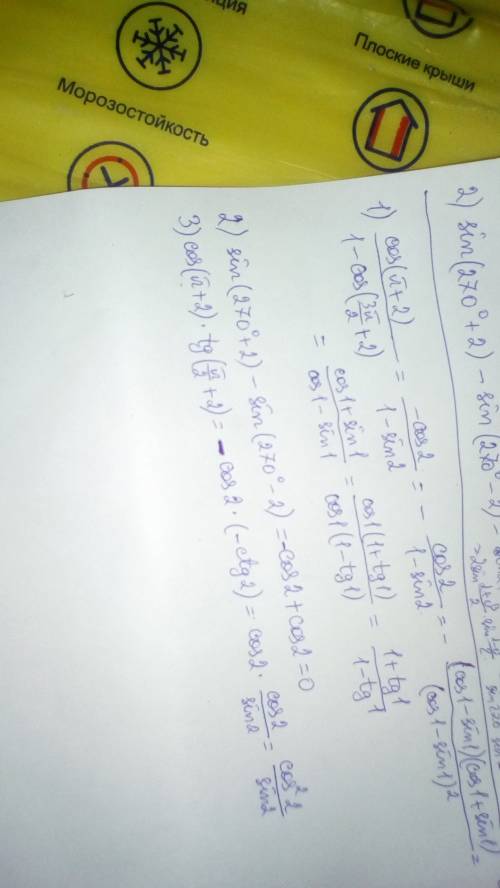 ция
Морозостойкость
Плоские крыши
2) sin(270°+2) - sin(270°-2) -
1) cos(π+2) / 1-cos(3π/2+2) = -cos2 / 1-sin2 = - cos2 / 1-sin2 = - (cos1-sin1)(cos1+sin1) / (cos1-sin1)2 =
= cos1+sin1 / cos1-sin1 = cos1(1+tg1) / cos1(1-tg1) = 1+tg1 / 1-tg1
2) sin(270°+2) - sin(270°-2) = -cos2+cos2=0
3) cos(π+2)·tg(π/2+2) = -cos2·(-ctg2) = cos2· cos2 / sin2 = cos²2 / sin2